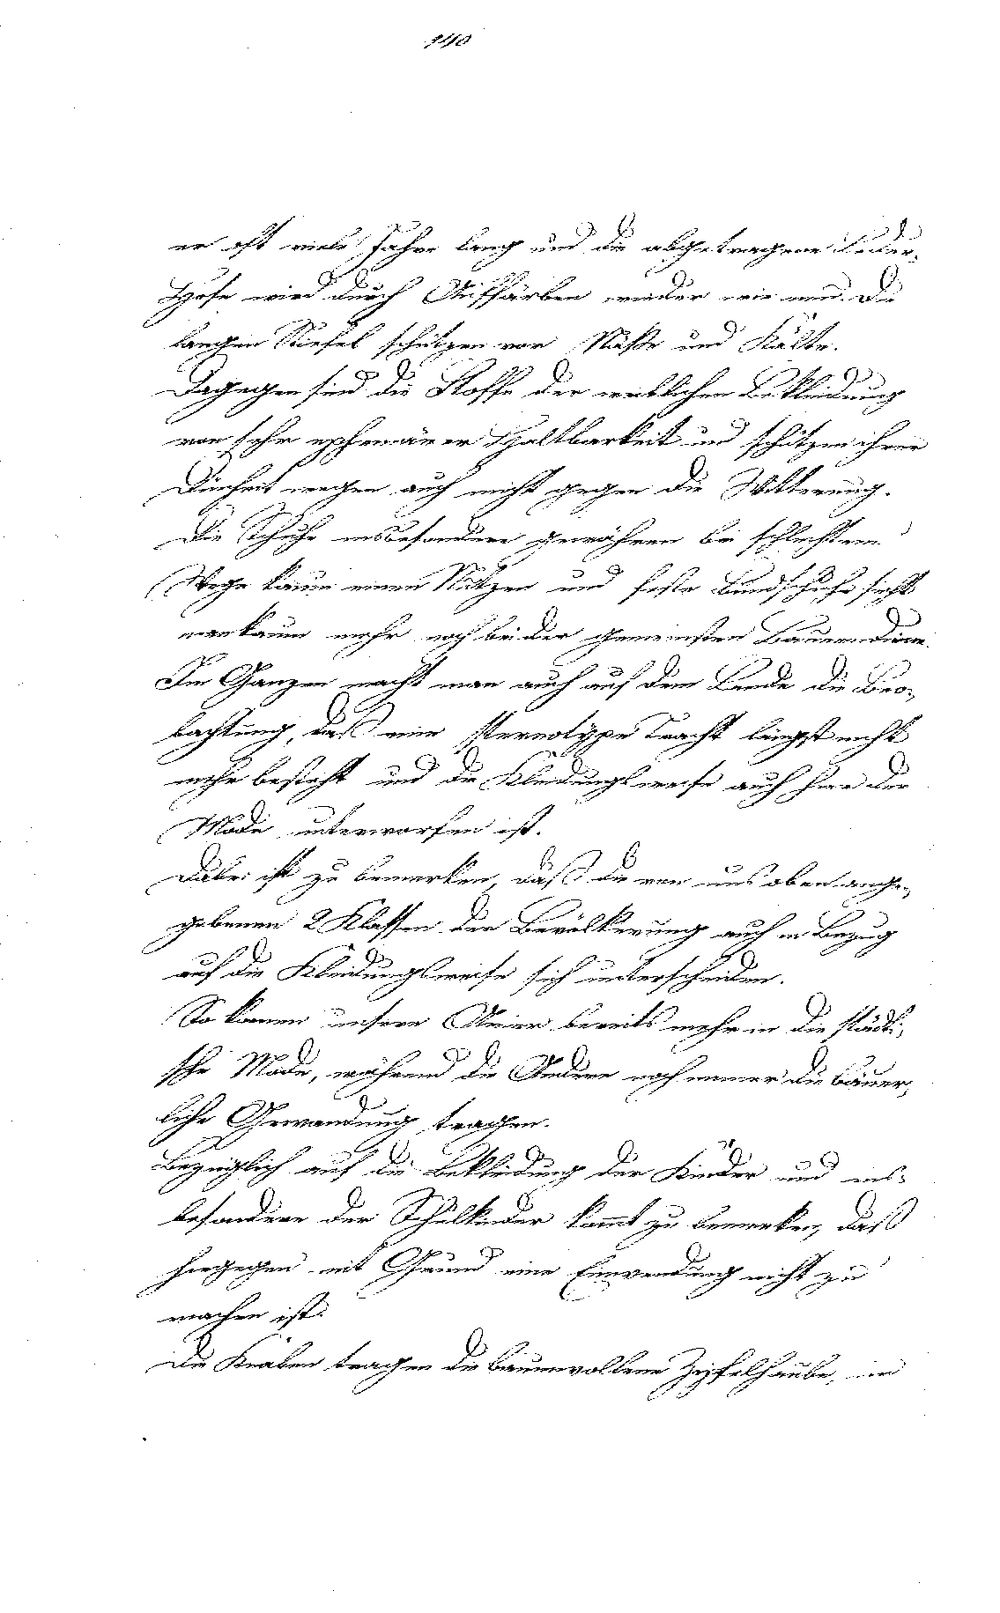 140
er oft viele Jahre lang und die abgetragene Leder-
Hose wird durch Auffärben wieder wie neu. Die
langen Stiefel schützen vor Näße und Kälte.
Dagegen sind die Stoffe der weiblichen Bekleidung
von sehr ephemärer Haltbarkeit und schützen ihrer
Dünheit wegen auch nicht gegen die Witterung.
Die Schuhe insbesondere gewähren bei schlechtem
Wege kaum einen Nutzen und feste Bundschuhe sieht
man kaum mehr noch bei der gemeinsten Bauerndirne.
Im Ganzen macht man auch auf dem Lande die Beo-
bachtung, daß eine stereotype Tracht längst nicht
mehr besteht und die Kleidungsweise auch hier der
Mode unterworfen ist.
Dabei ist zu bemerken, daß die von uns oben ange-
gebenen 2 Klassen der Bevölkerung auch in Bezug
auf die Kleidungsweise sich unterscheiden.
So kamen unsere Maier bereits mehr in die städti-
sche Mode, während die Andere noch immer die bäuer-
liche Gewandung tragen.
Bezüglich auf die Bekleidung der Kinder und ins-
besondere der Schulkinder kommt zu bemerken, daß
hiegegen mit Grund eine Einwendung nicht zu
machen ist.
Die Knaben tragen die baumwollene Zipfelhaube, im